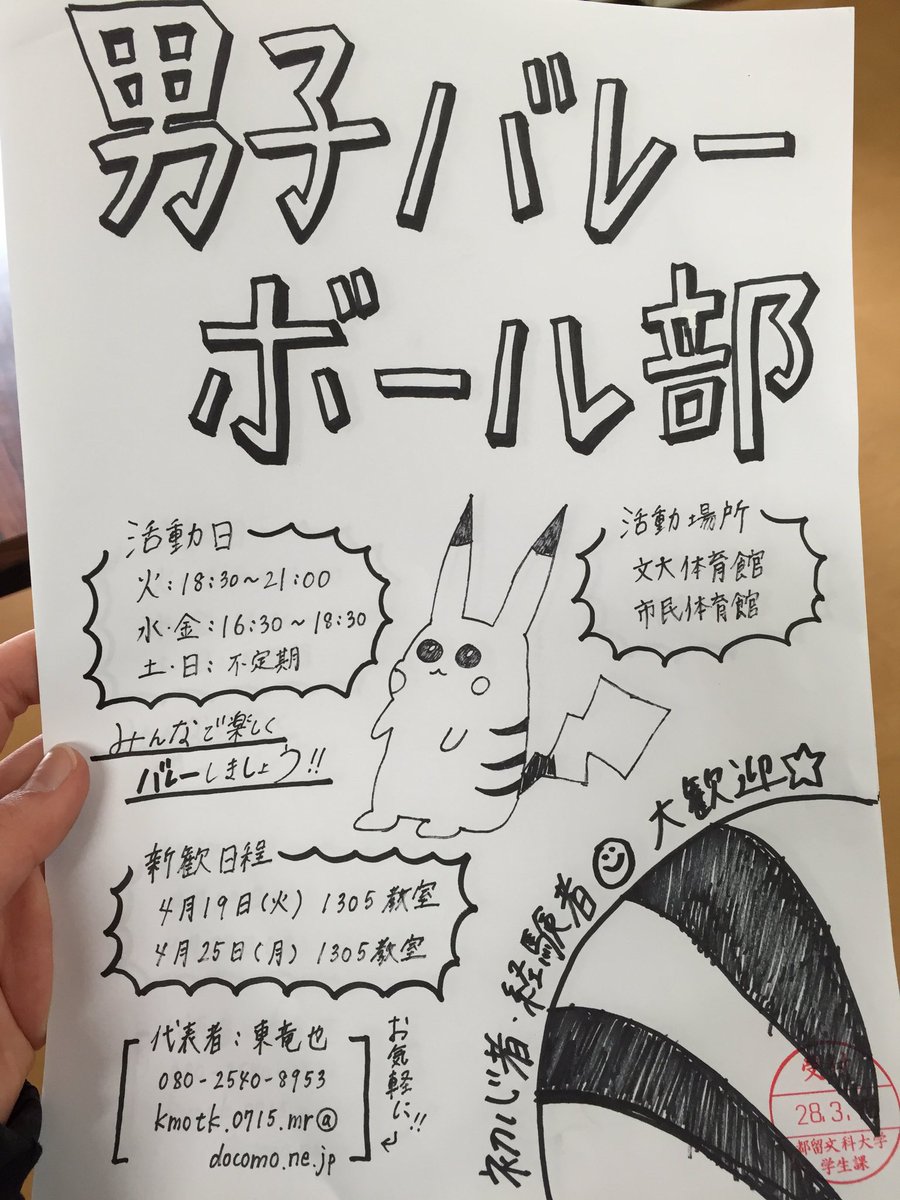 男子バレー
ボール部
活動日
火:18:30～21:00
水・金:16:30～18:30
土・日:不定期
活動場所
文大体育館
市民体育館
みんなで楽しく
バレーしましょう!!
新歓日程
4月19日(火) 1305教室
4月25日(月) 1305教室
代表者:東竜也
080-2540-8953
kmotk.0715.mr@
docomo.ne.jp
お気軽に!!
初心者・経験者☺大歓迎☆
28.3.
都留文科大学
学生課